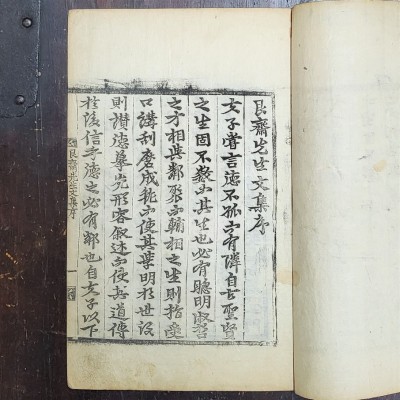 艮齋先生文集序
孔子嘗言德不孤必有隣自古聖賢
之生固不數而其生也必有聰明
之才相與鄰聚而輔相之生則指受
口講刮磨成就而使其學明於世沒
則讃德摹光形容叙述而使其道傳
於後信乎德之必有鄰也自孔子以下
艮齋先生文集序 一